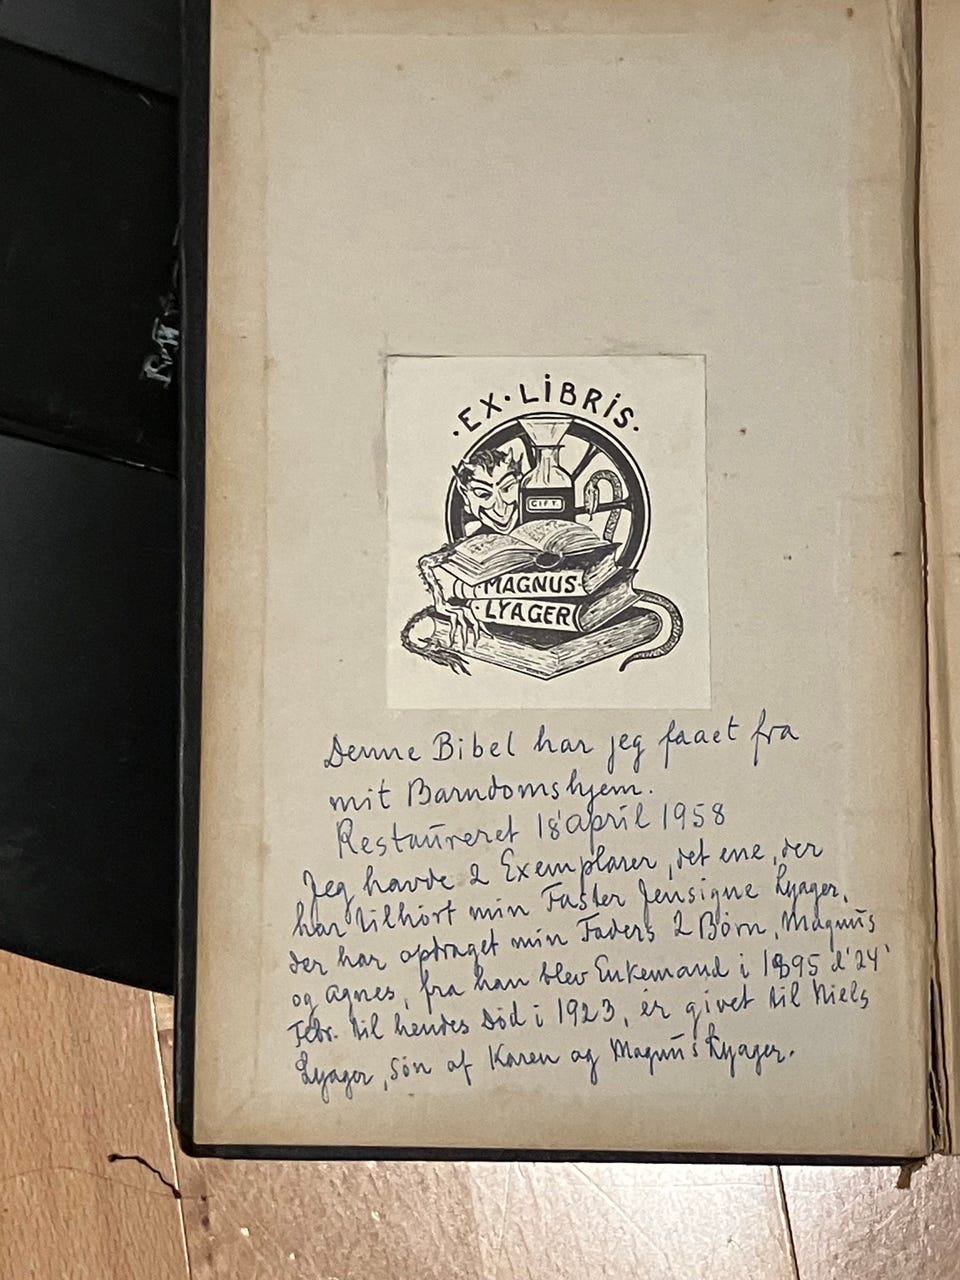 ·EX·LiBRiS·
GIFT.
·MAGNUS·
·LYAGER·
Denne Bibel har jeg faaet fra
mit Barndomshjem.
Restaureret 18 april 1958
Jeg havde 2 Exemplarer, det ene, der
har tilhört min Faster Jensigne Lyager,
der har opdraget min Faders 2 Börn, Magnus
og Agnes, fra han blev Enkemand i 1895 d' 24'
Febr. til hendes Död i 1923, er givet til Niels
Lyager, Sön af Karen og Magnus Lyager.